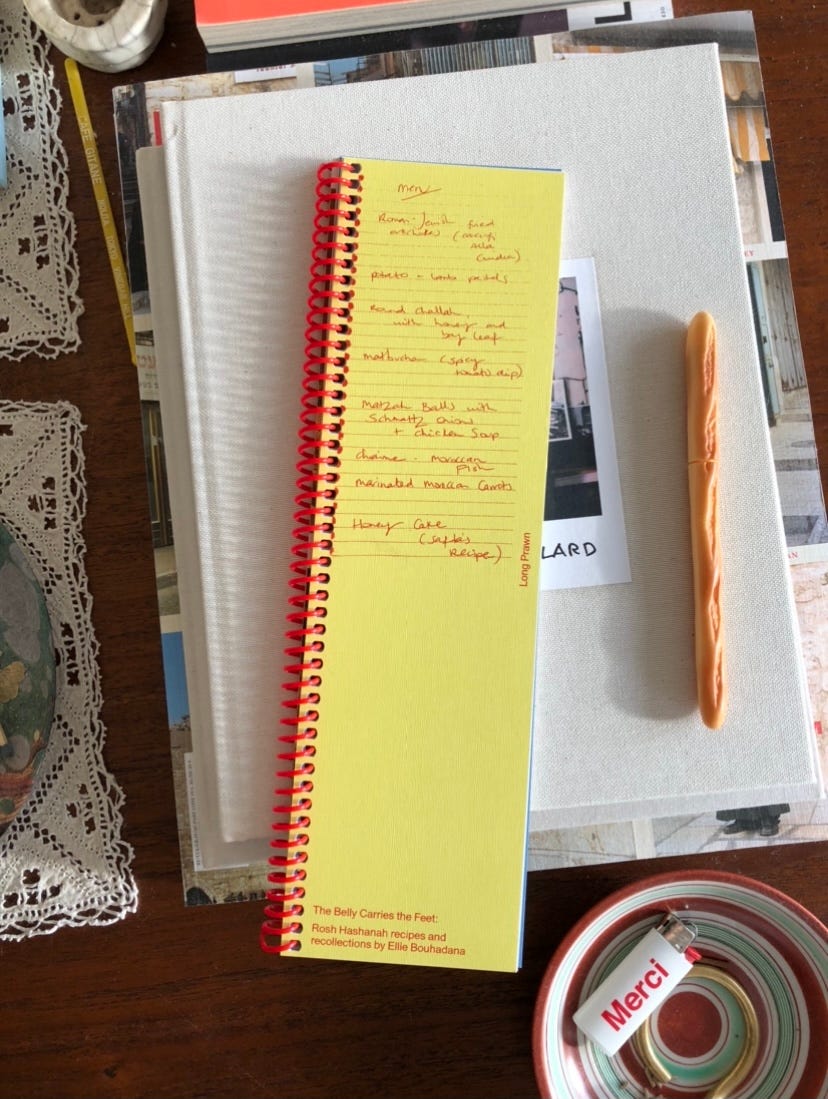 CAFÉ GITANE
L
menu
Roman-Jewish fried
artichokes (carciofi
alla
Giudia)
potato + lamb pastels
Round challah,
with honey and
bay leaf
Matbucha (spicy
tomato dip)
Matzah Balls with
Schmaltz Onions
+ Chicken Soup
chraime - moroccan
Fish
marinated moroccan Carrots
Honey Cake
(safta's
Recipe)
Long Prawn
LARD
The Belly Carries the Feet:
Rosh Hashanah recipes and
recollections by Ellie Bouhadana
Merci